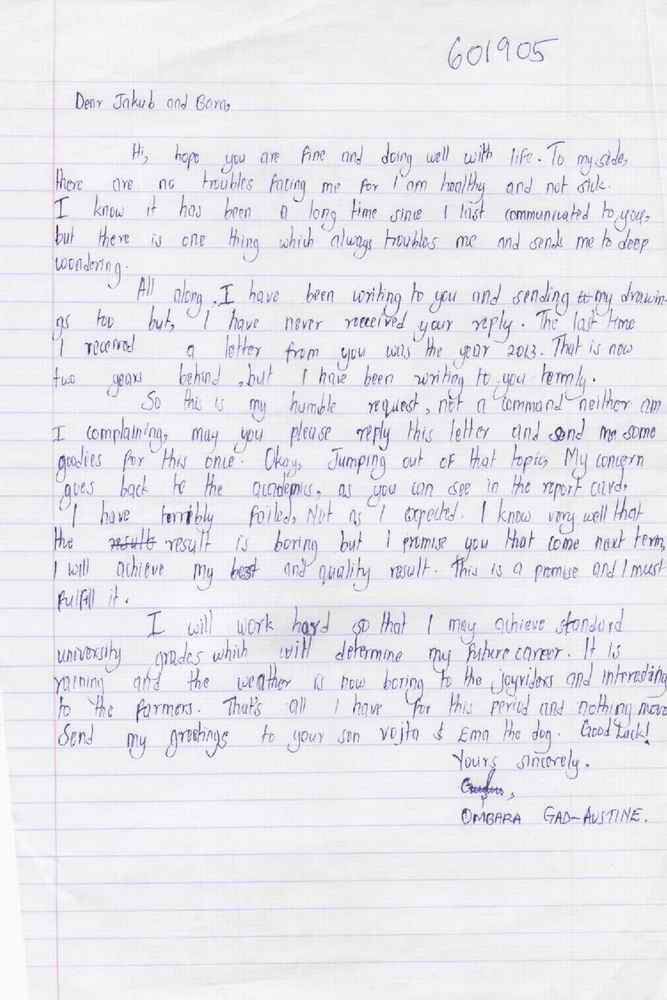 601905
Dear Jakub and Bara,
Hi, hope you are fine and doing well with life. To my side,
there are no troubles facing me for I am healthy and not sick.
I know it has been a long time since I last communicated to you,
but there is one thing which always troubles me and sends me to deep
wondering.
All along, I have been writing to you and sending my drawin-
gs too but, I have never received your reply. The last time
I received a letter from you was the year 2013. That is now
two years behind, but I have been writing to you termly.
So this is my humble request, not a command neither am
I complaining, may you please reply this letter and send me some
goodies for this once. Okay, Jumping out of that topic, My concern
goes back to the academics, as you can see in the report card,
I have terribly failed, Not as I expected. I know very well that
the result result is boring but I promise you that come next term,
I will achieve my best and quality result. This is a promise and I must
fulfill it.
I will work hard so that I may achieve standard
university grades which will determine my future career. It is
raining and the weather is now boring to the joyriders and interesting
to the farmers. That's all I have for this period and nothing more
Send my greetings to your son Vojta & Ema the dog. Good Luck!
Yours sincerely.
OMBARA GAD-AUSTINE.